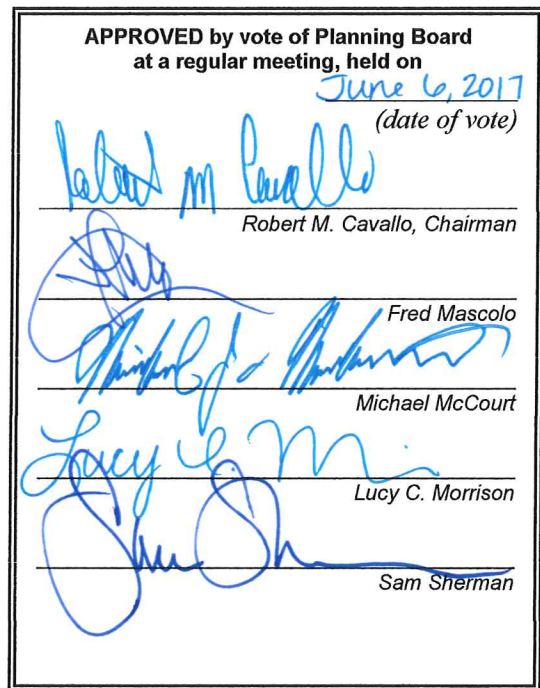 APPROVED by vote of Planning Board
at a regular meeting, held on
June 6, 2017
(date of vote)
Robert M Cavallo
Robert M. Cavallo, Chairman
Fred Mascolo
Michael McCourt
Lucy C. M
Lucy C. Morrison
Sam Sherman
Sam Sherman